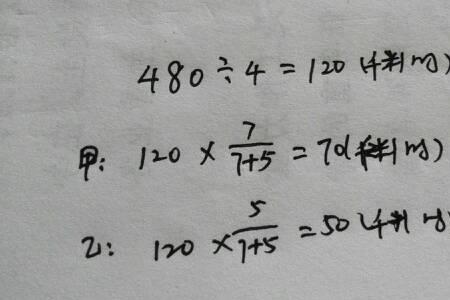 480÷4=120(千米/时)
甲: 120×7/(7+5)=70(千米/时)
乙: 120×5/(7+5)=50(千米/时